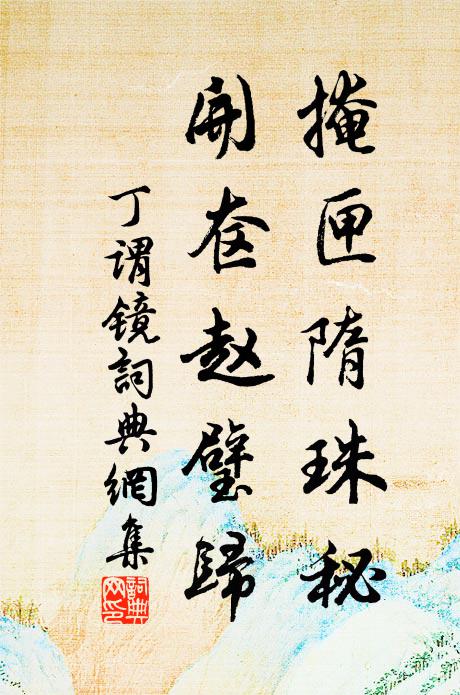 掩匣隋珠秘
開奁赵璧歸
丁谓鏡詞典網集
詞典